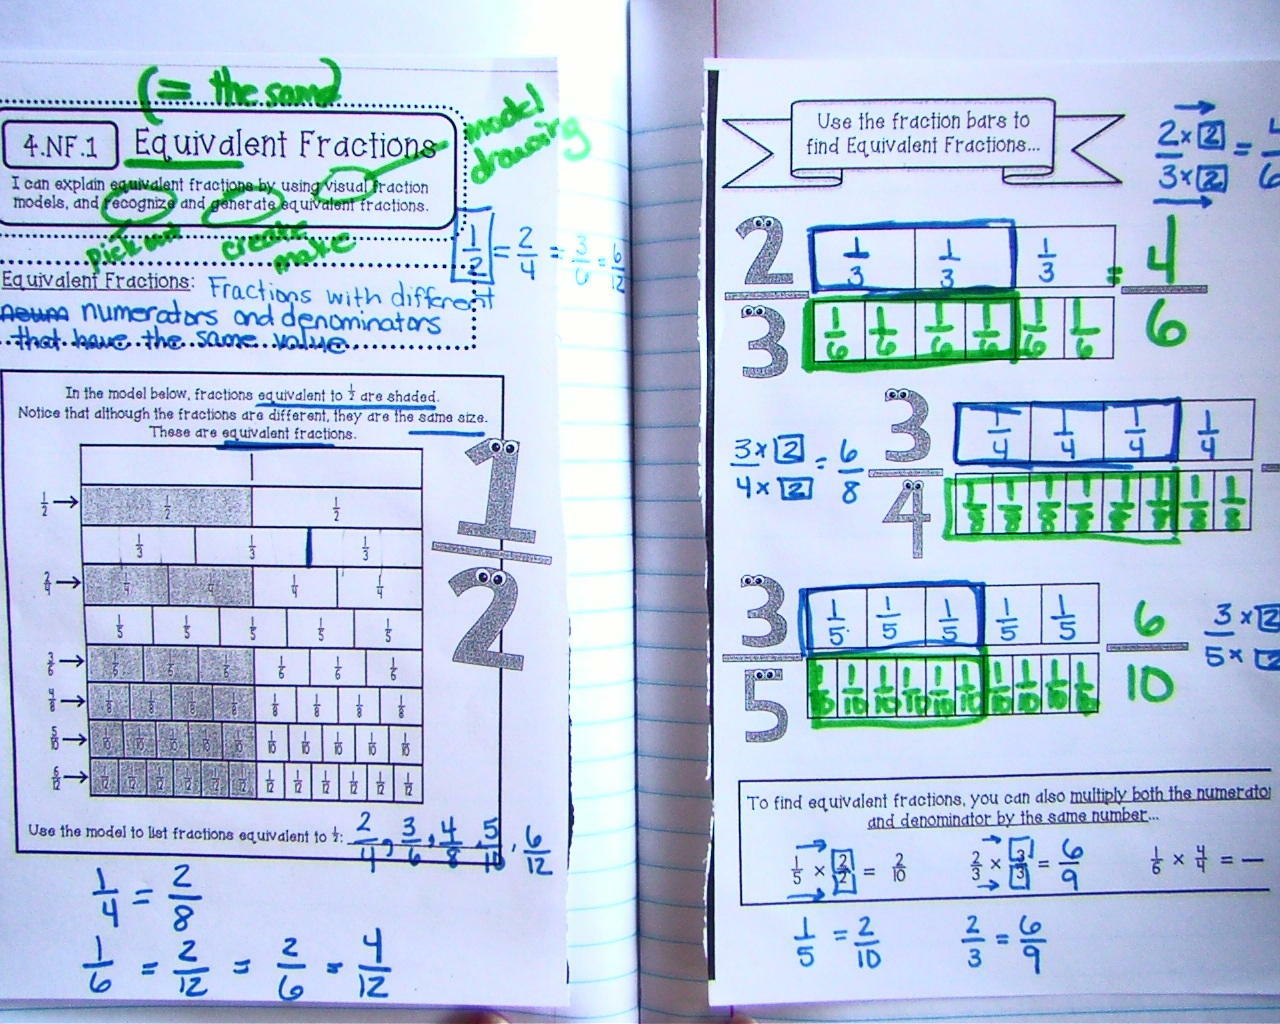 (= the same)
4.NF.1 Equivalent Fractions
model
drawing
I can explain equivalent fractions by using visual fraction
models, and recognize and generate equivalent fractions.
pick out create
make
1/2 = 2/4 = 3/6 = 6/12
Equivalent Fractions: Fractions with different
numerators and denominators
that have the same value
In the model below, fractions equivalent to 1/2 are shaded.
Notice that although the fractions are different, they are the same size.
These are equivalent fractions.
1
1/2 → 1/2 1/2
1/3 1/3 1/3
2/4 → 1/4 1/4 1/4 1/4
1/5 1/5 1/5 1/5 1/5
3/6 → 1/6 1/6 1/6 1/6 1/6 1/6
4/8 → 1/8 1/8 1/8 1/8 1/8 1/8 1/8 1/8
5/10 → 1/10 1/10 1/10 1/10 1/10 1/10 1/10 1/10 1/10 1/10
6/12 → 1/12 1/12 1/12 1/12 1/12 1/12 1/12 1/12 1/12 1/12 1/12 1/12
1/2
Use the model to list fractions equivalent to 1/2: 2/4, 3/6, 4/8, 5/10, 6/12
1/4 = 2/8
1/6 = 2/12 = 2/6 = 4/12
Use the fraction bars to
find Equivalent Fractions...
2 x 2 / 3 x 2 = 4/6
2/3 1/3 1/3 1/3 = 4/6
1/6 1/6 1/6 1/6 1/6 1/6
3 x 2 / 4 x 2 = 6/8
3/4 1/4 1/4 1/4 1/4
1/8 1/8 1/8 1/8 1/8 1/8 1/8 1/8
3/5 1/5 1/5 1/5 1/5 1/5 6/10
1/10 1/10 1/10 1/10 1/10 1/10 1/10 1/10 1/10 1/10
3 x 2 / 5 x 2
To find equivalent fractions, you can also multiply both the numerator
and denominator by the same number...
1/5 × 2/2 = 2/10 2/3 × 3/3 = 6/9 1/6 × 4/4 = —
1/5 = 2/10 2/3 = 6/9